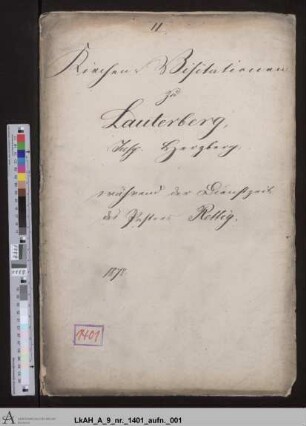 11
Kirchen Visitationen
zu
Lauterberg,
Insp. Herzberg.
während der Dienstzeit
des Pastors Rettig.
1401
LkAH_A_9_nr._1401_aufn._001